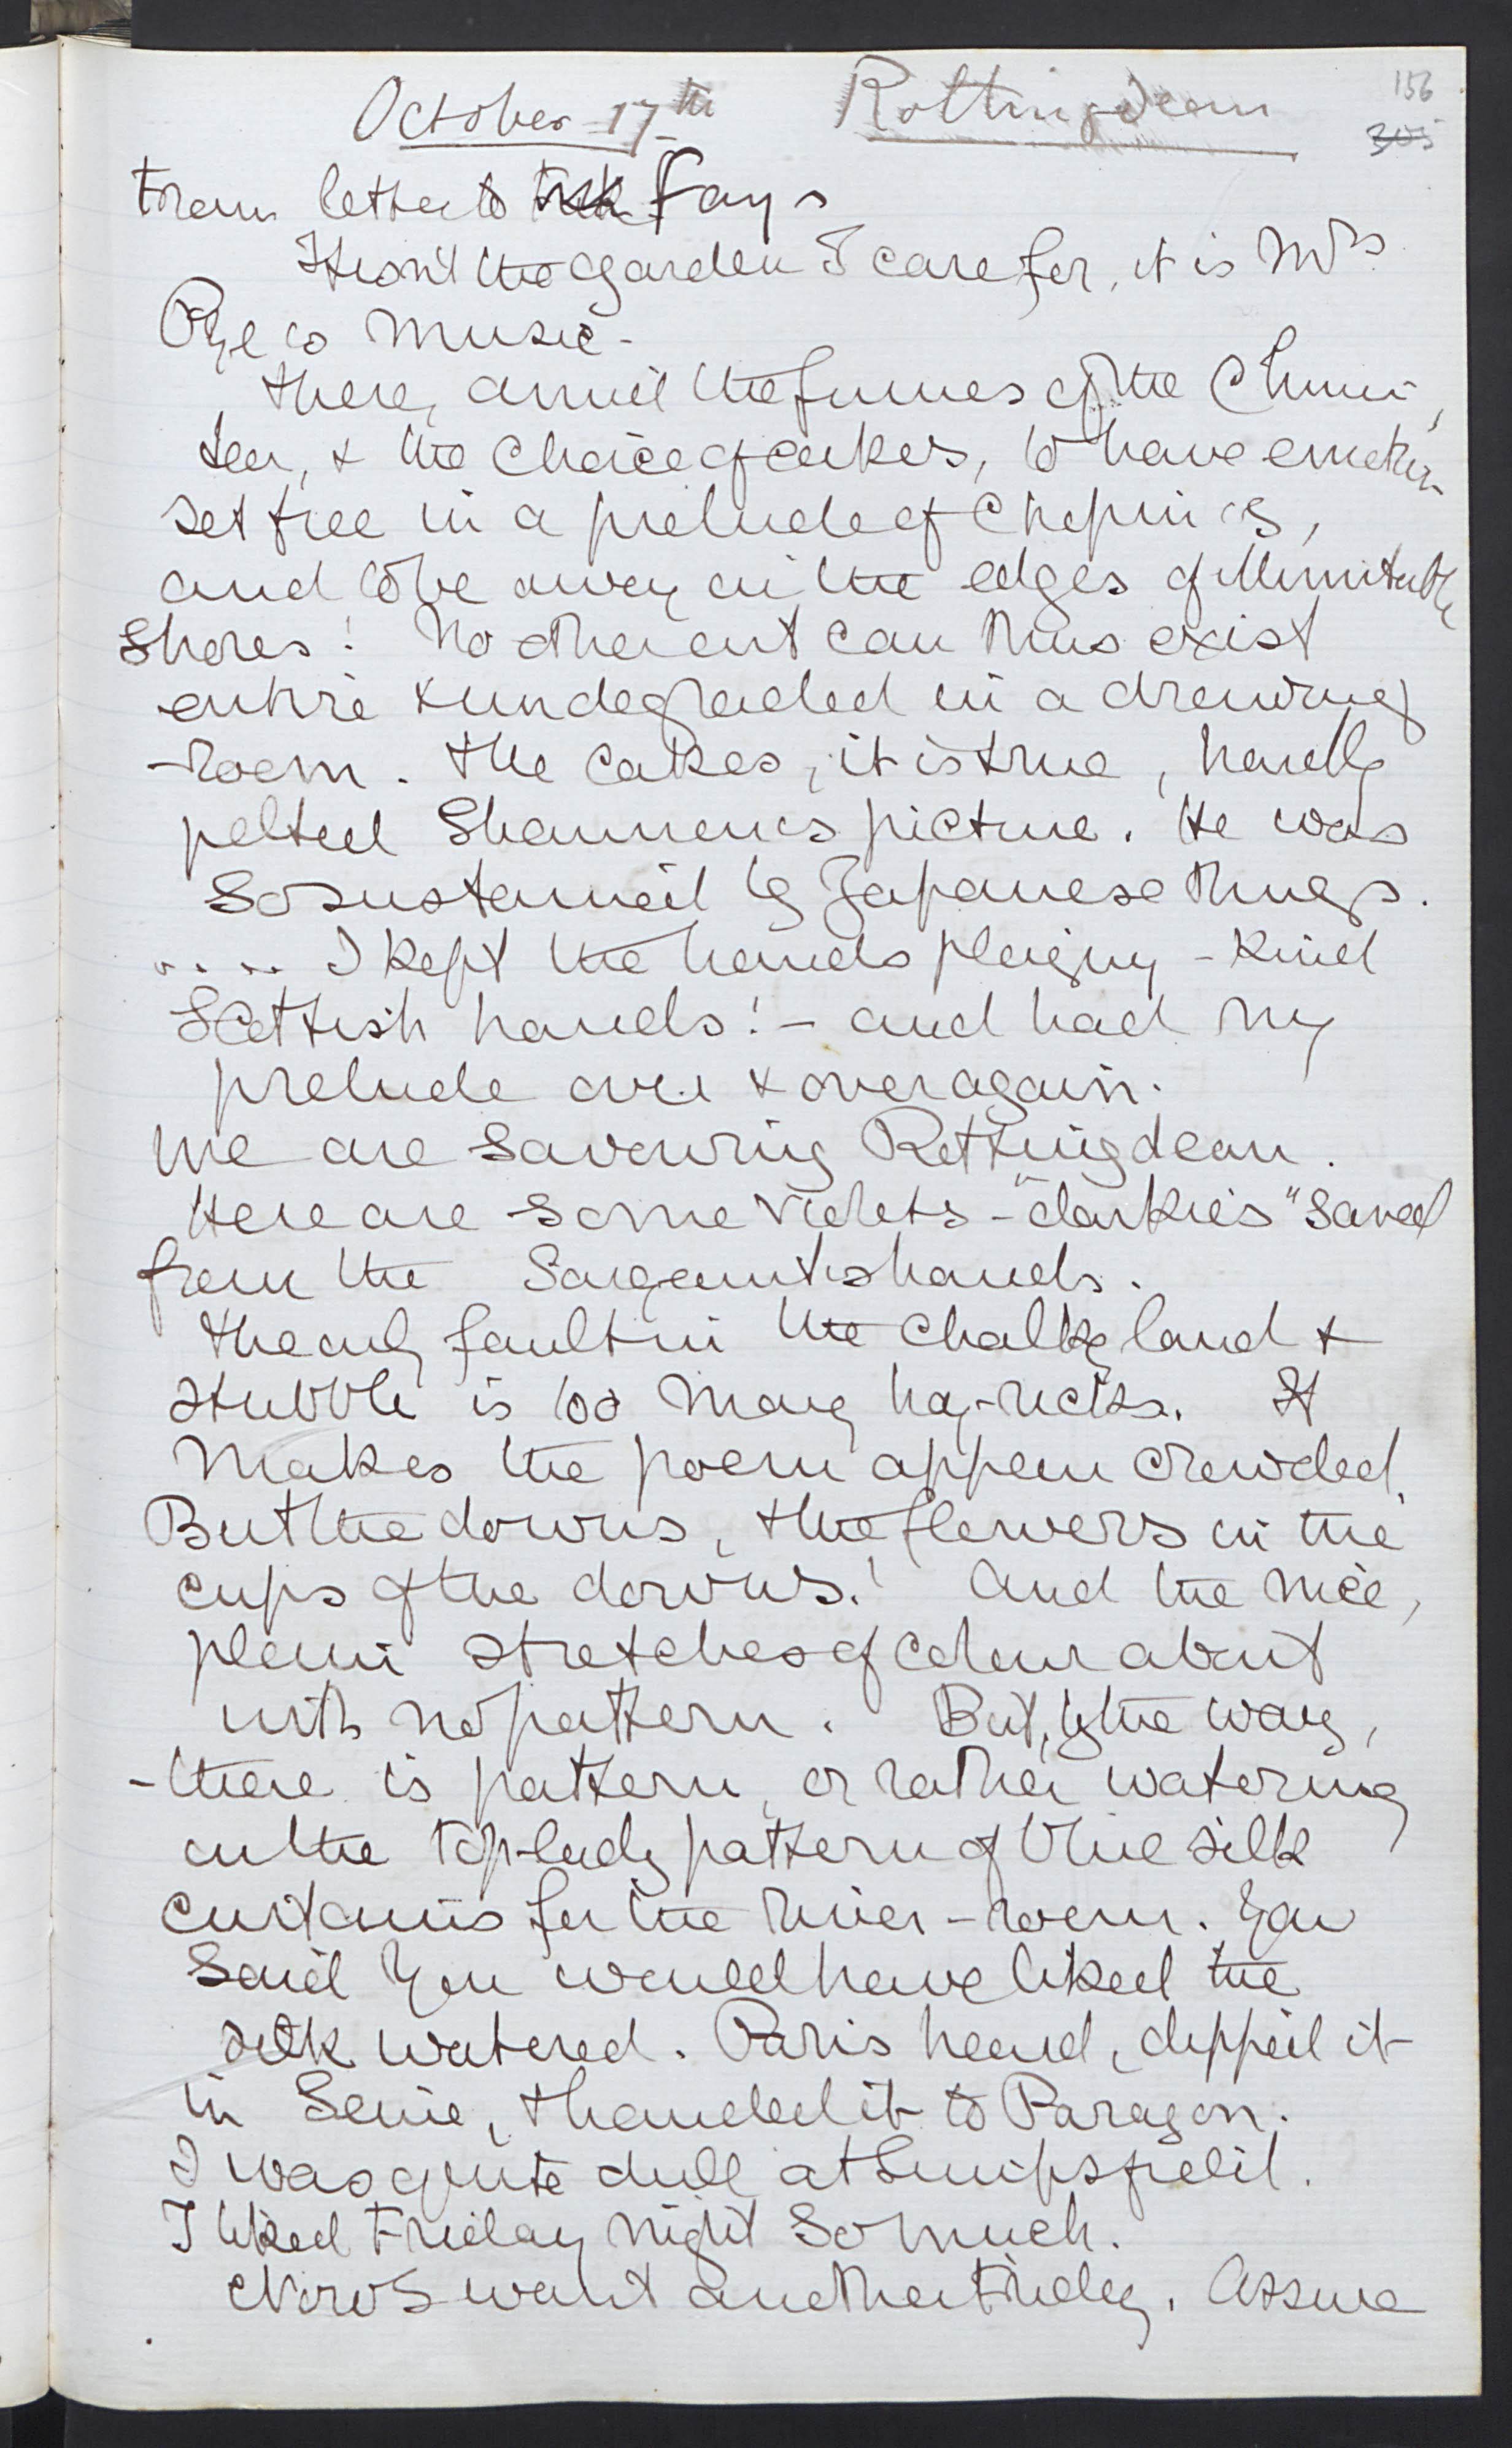 October 17th Rottingdean 156
305
From letter to Fay's
It isn't the garden I care for, it is Mrs
Pye's music -
There, amid the fumes of the China
tea, & the choice of cakes, to have emotion
set free in a prelude of Chopin's,
and to be away on the edges of illimitable
shores! No other art can thus exist
entire & undegraded in a drawing
-room. The cakes, it is true, hardly
pelted Shannon's picture. He was
so sustained by Japanese things.
.... I kept the hands playing - kind
Scottish hands! - and had my
prelude over & over again.
We are savouring Rottingdean.
Here are some violets - "darkies" saved
from the Sargeant's hands.
The only fault in the chalky land &
stubble is too many hay-ricks. It
makes the poem appear crowded.
But the downs, the flowers in the
cups of the downs! And the nice,
plain stretches of colour about
with no pattern. But, by the way,
- there is pattern, or rather watering
on the Top-lady pattern of blue silk
curtains for the river-room. You
said you would have liked the
silk watered. Paris heard, dipped it
in Seine, & handed it to Paragon.
I was quite dull at Limpsfield.
I liked Friday night so much.
Now I want another Friday. Assure